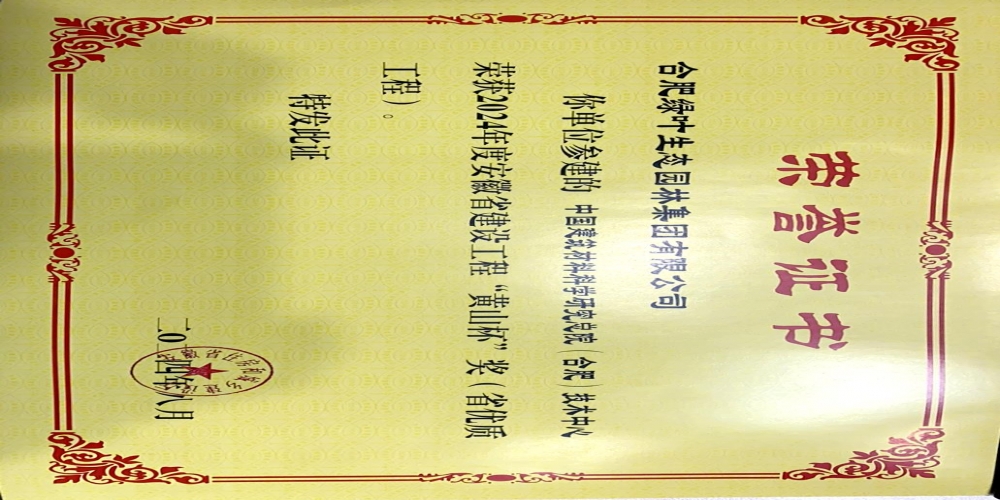 荣誉证书
合肥绿叶生态园林集团有限公司
你单位参建的 中国建筑材料科学研究总院（合肥）技术中心
荣获2024年度安徽省建设工程“黄山杯”奖（省优质
工程）。
特发此证
二〇二四年八月